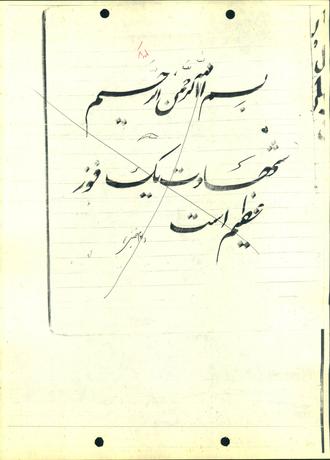 بسم الله الرحمن الرحیم
شهادت یک فوز
عظیم است